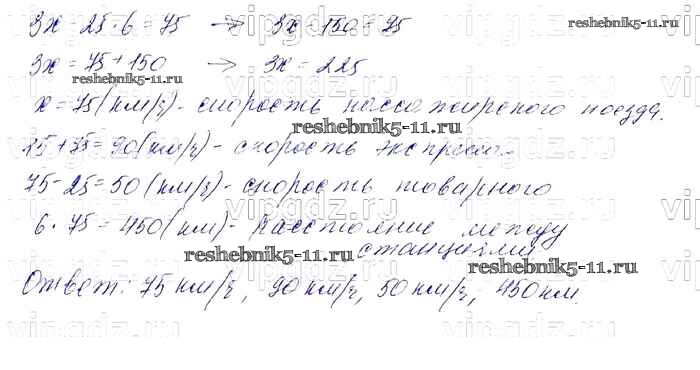 3х - 25·6 = 75 → 3х - 150 = 75
3х = 75 + 150 → 3х = 225
х = 75 (км/ч) - скорость пассажирского поезда.
15 + 75 = 90 (км/ч) - скорость экспресса
75 - 25 = 50 (км/ч) - скорость товарного
6 · 75 = 450 (км) - расстояние между
станциями
Ответ: 75 км/ч, 90 км/ч, 50 км/ч, 450 км.
reshebnik5-11.ru
reshebnik5-11.ru
reshebnik5-11.ru
reshebnik5-11.ru
reshebnik5-11.ru
vipgdz.ru
vipgdz.ru
vipgdz.ru
vipgdz.ru